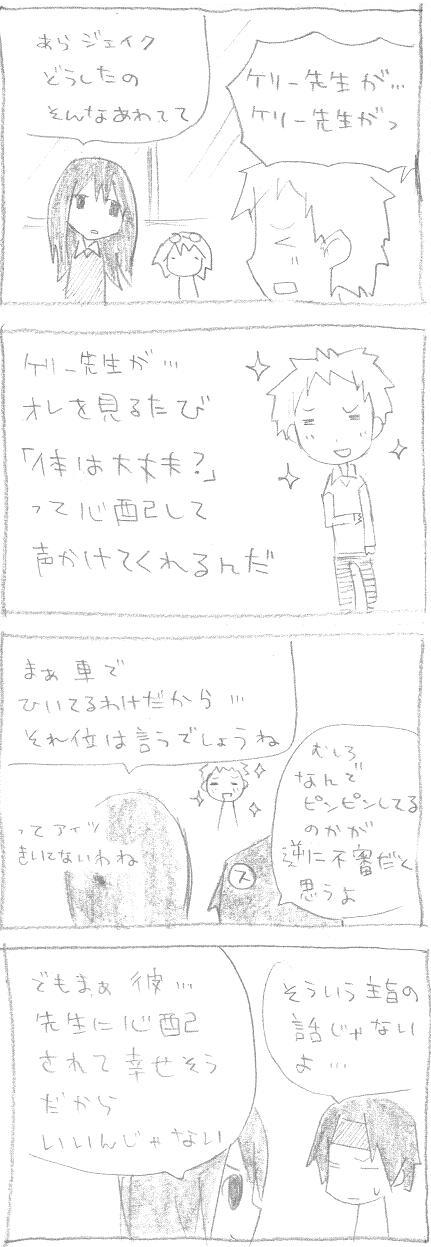 ケリー先生が…
ケリー先生がっ
あらジェイク
どうしたの
そんなあわてて
ケリー先生が…
オレを見るたび
「体は大丈夫?」
って心配して
声かけてくれるんだ
まぁ車で
ひいてるわけだから…
それ位は言うでしょうね
ってアイツ
きいてないわね
むしろ
なんで
ピンピンしてる
のかが
逆に不審だと
思うよ
ス
でもまぁ彼…
先生に心配
されて幸せそう
だから
いいんじゃない
そういう主旨の
話じゃない
よ…